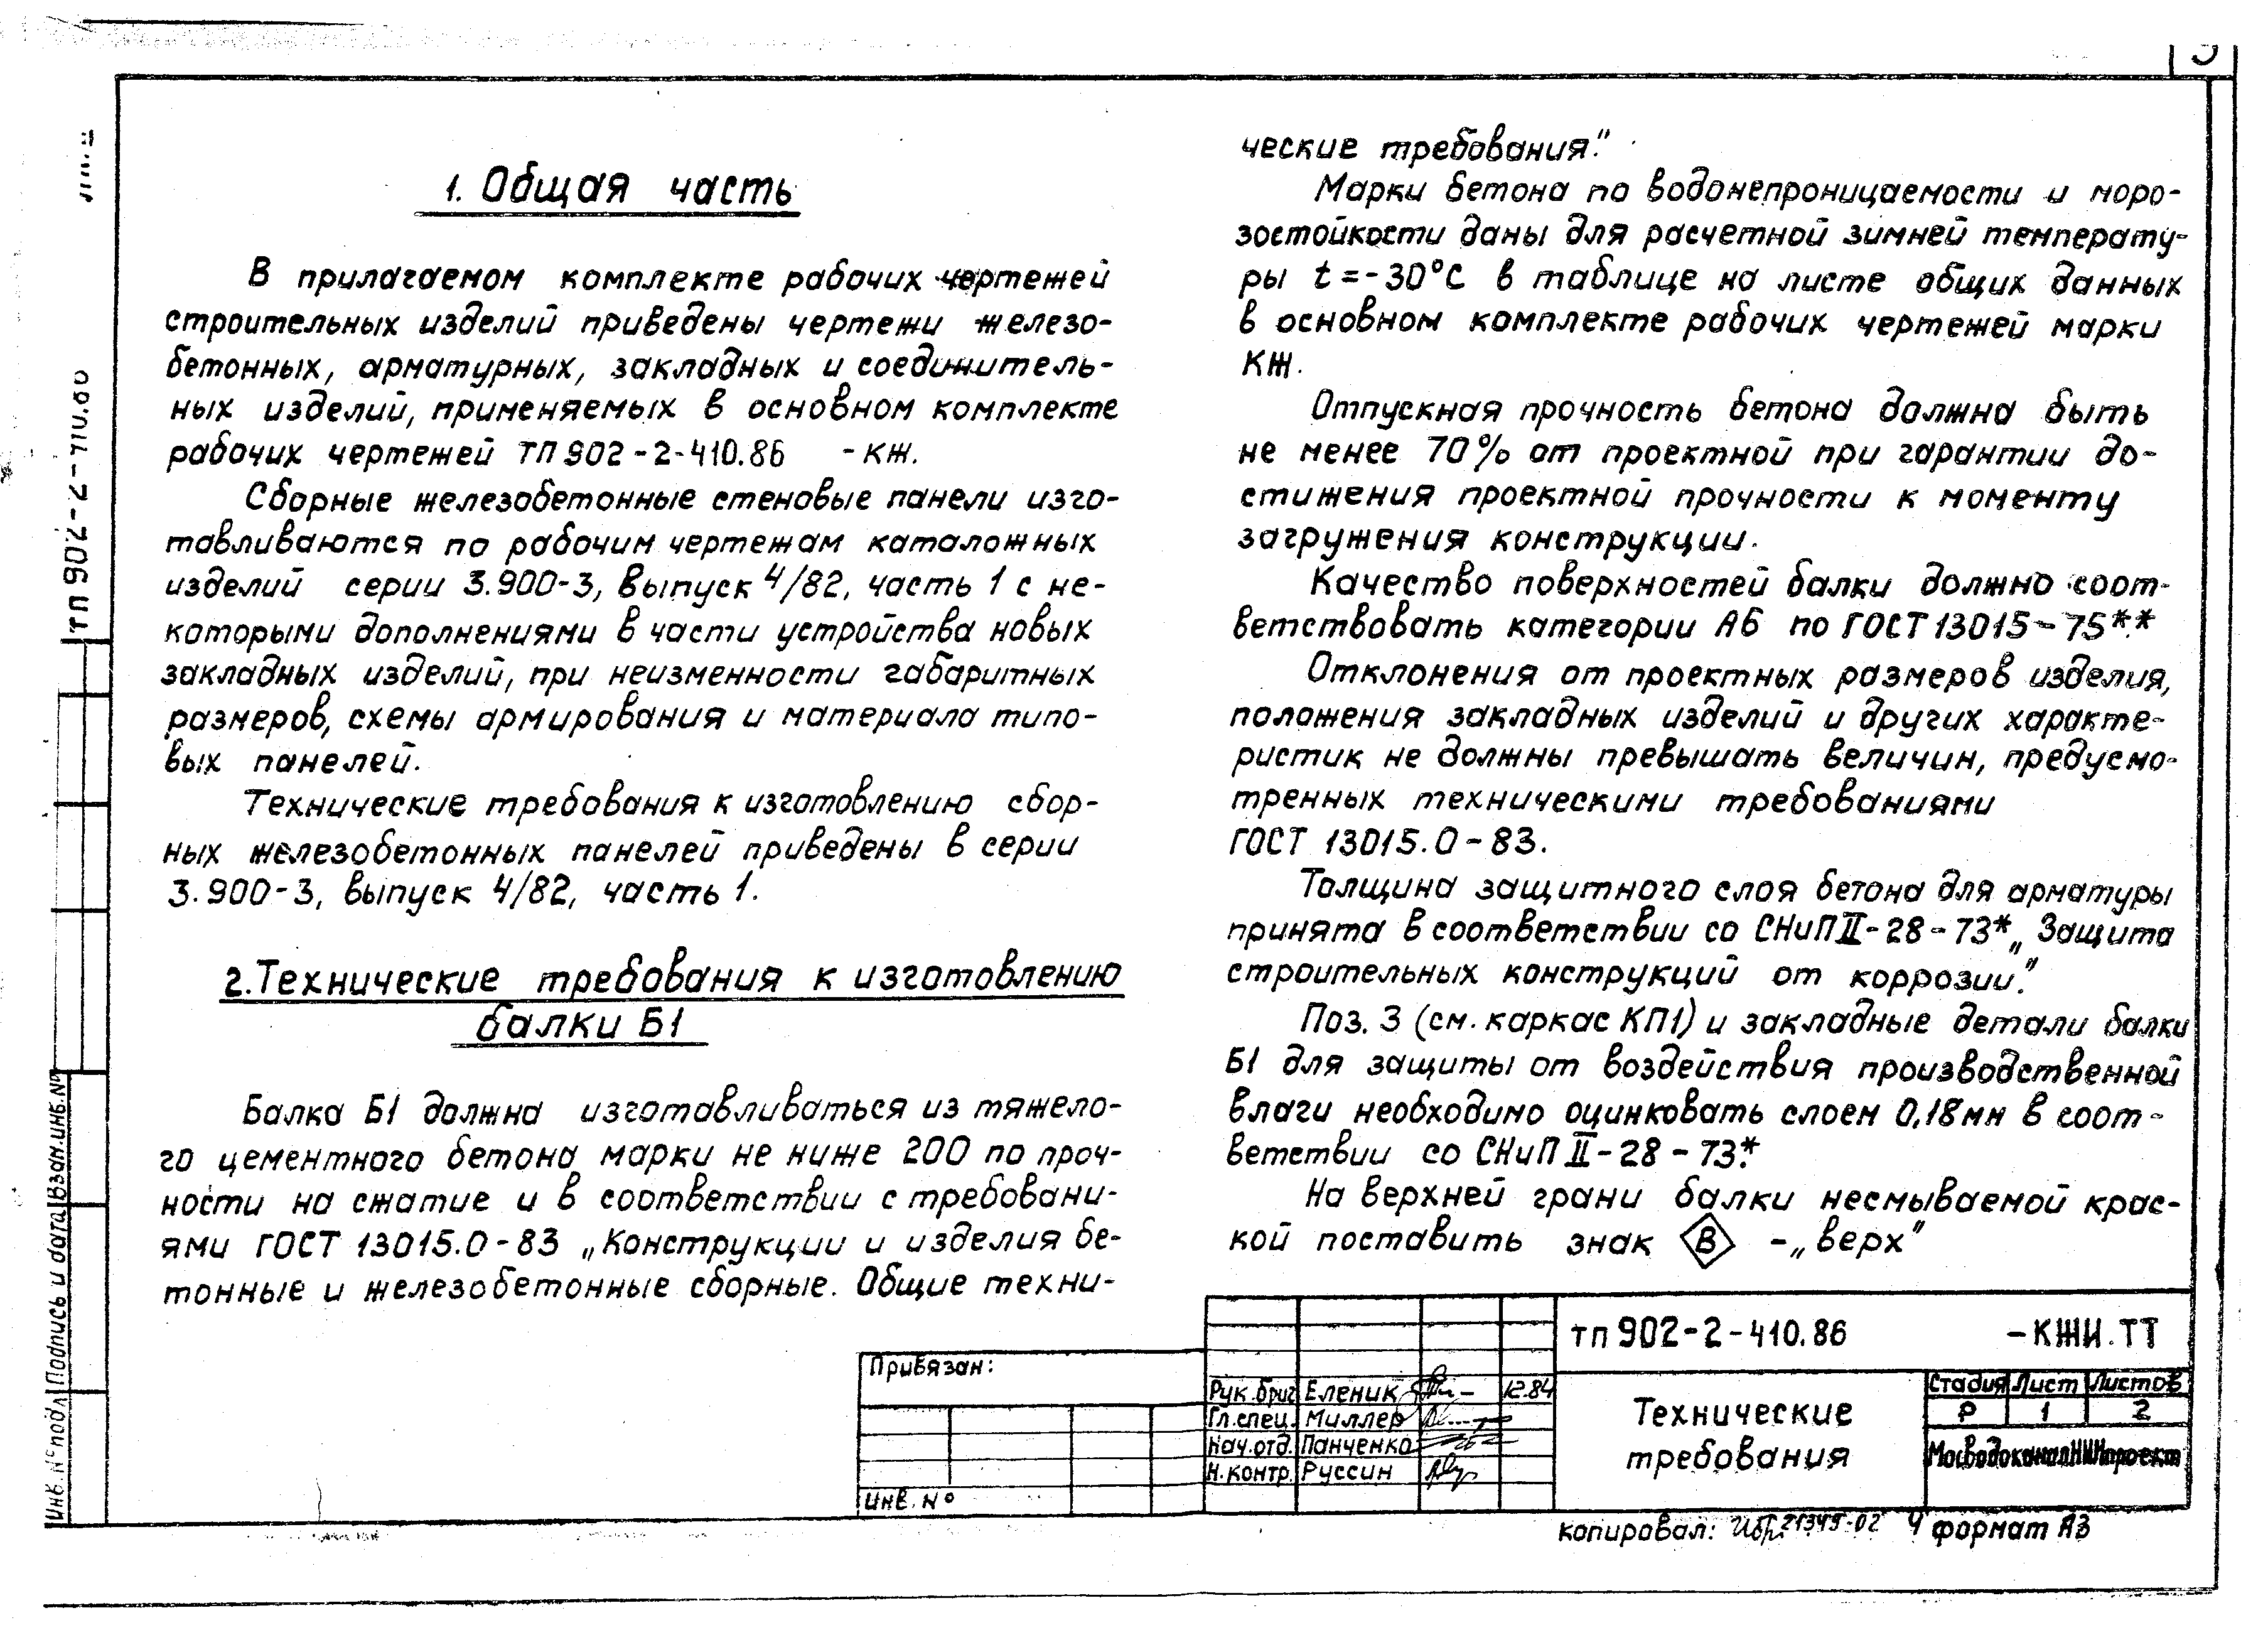 1. Общая часть
В прилагаемом комплекте рабочих чертежей
строительных изделий приведены чертежи железо-
бетонных, арматурных, закладных и соединитель-
ных изделий, применяемых в основном комплекте
рабочих чертежей ТП 902-2-410.86 -КЖ.
Сборные железобетонные стеновые панели изго-
тавливаются по рабочим чертежам каталожных
изделий серии 3.900-3, Выпуск 4/82, часть 1 с не-
которыми дополнениями в части устройства новых
закладных изделий, при неизменности габаритных
размеров, схемы армирования и материала типо-
вых панелей.
Технические требования к изготовлению сбор-
ных железобетонных панелей приведены в серии
3.900-3, Выпуск 4/82, часть 1.
2. Технические требования к изготовлению
балки Б1
Балка Б1 должна изготавливаться из тяжело-
го цементного бетона марки не ниже 200 по проч-
ности на сжатие и в соответствии с требовани-
ями ГОСТ 13015.0-83 „Конструкции и изделия бе-
тонные и железобетонные сборные. Общие техни-
ческие требования."
Марки бетона по водонепроницаемости и моро-
зостойкости даны для расчетной зимней температу-
ры t=-30°C в таблице на листе общих данных
в основном комплекте рабочих чертежей марки
КЖ.
Отпускная прочность бетона должна быть
не менее 70% от проектной при гарантии до-
стижения проектной прочности к моменту
загружения конструкции.
Качество поверхностей балки должно соот-
ветствовать категории А6 по ГОСТ 13015-75**.
Отклонения от проектных размеров изделия,
положения закладных изделий и других характе-
ристик не должны превышать величин, предусмо-
тренных техническими требованиями
ГОСТ 13015.0-83.
Толщина защитного слоя бетона для арматуры
принята в соответствии со СНиП II-28-73* „Защита
строительных конструкций от коррозии."
Поз. 3 (см. каркас КП1) и закладные детали балки
Б1 для защиты от воздействия производственной
влаги необходимо оцинковать слоем 0,18мм в соот-
ветствии со СНиП II-28-73*.
На верхней грани балки несмываемой крас-
кой поставить знак В -„верх"
ТП 902-2-410.86 -КЖИ.ТТ
Привязан:
Инв. №
Рук.бриг. Еленик 12.84
Гл.спец. Миллер
Нач.отд. Панченко
Н.контр. Руссин
Технические
требования
Стадия Лист Листов
Р 1 2
МосводоканалНИИпроект
копировал: 21345-02 4 формат А3
ТП 902-2-410.86
Инв. № подл. Подпись и дата Взам.инв.№